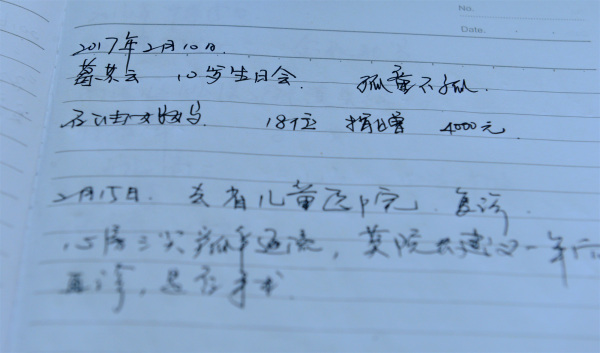 No.
Date.
2017年2月10日.
10岁生日会. 孤童不孤.
18位 捐赠 4000元
2月15日. 去省儿童医院 复诊.
心房三尖瓣 , 莫院长建议一年后
再诊, 是否手术